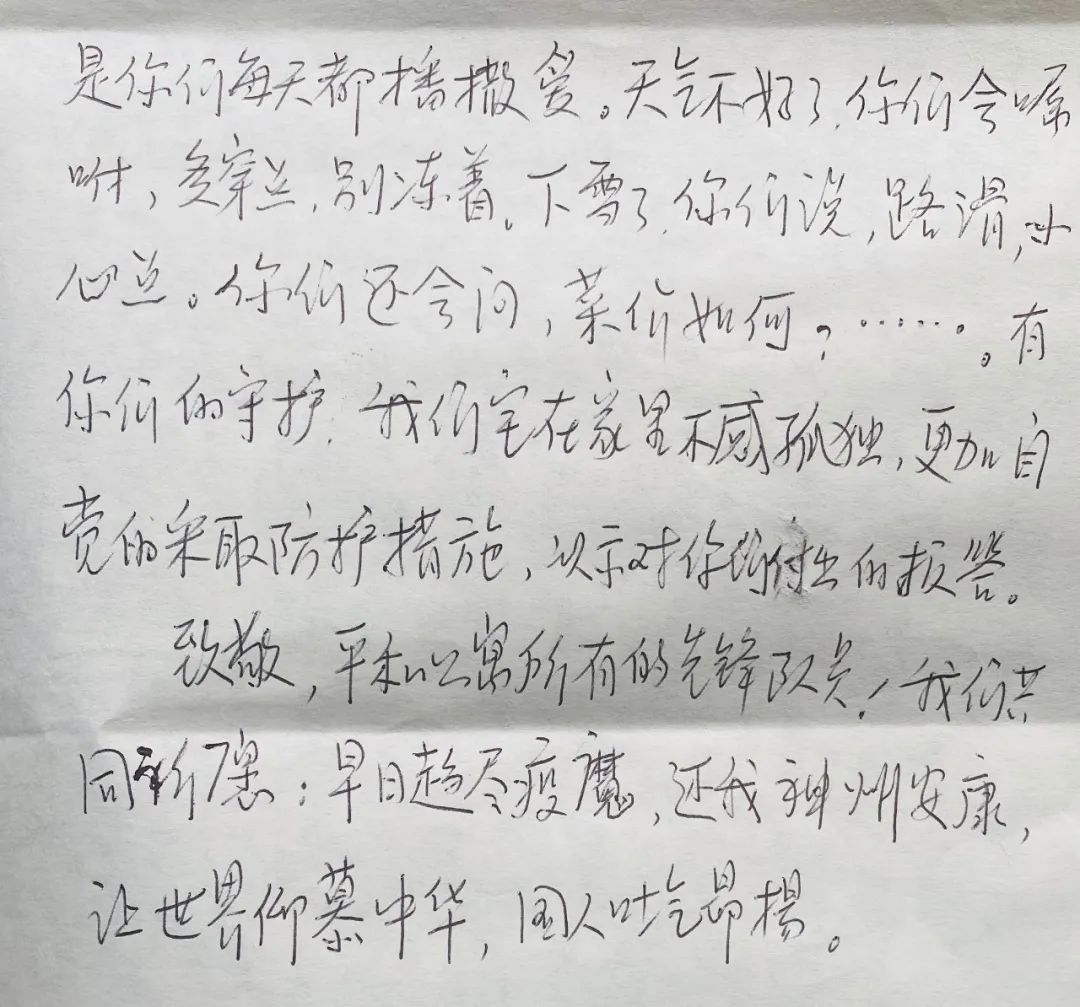 是你们每天都播撒爱。天气不好了，你们会嘱
咐，多穿点，别冻着。下雪了，你们说，路滑，小
心点。你们还会问，菜价如何？……。有
你们的守护，我们宅在家里不感孤独，更加自
觉的采取防护措施，以示对你们付出的报答。
致敬，平和公寓所有的先锋队员！我们共
同祈愿：早日趋尽疫魔，还我神州安康，
让世界仰慕中华，国人吐气昂揚。